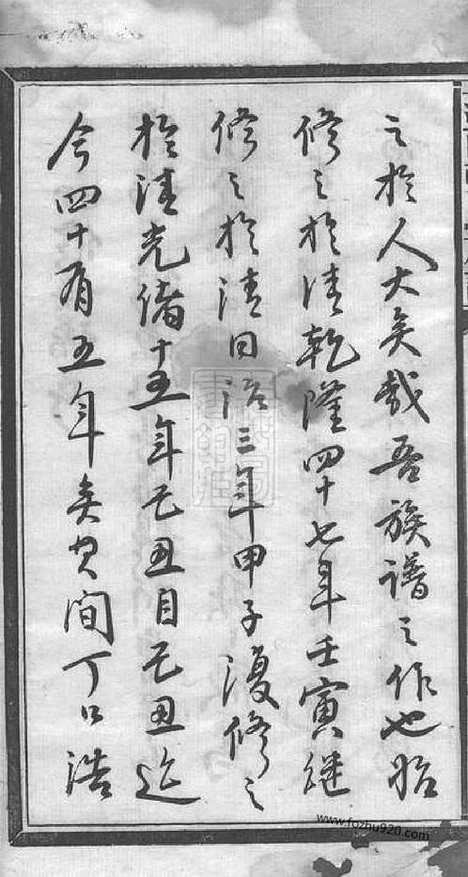 之於人大矣哉吾族譜之作也始
修之於清乾隆四十七年壬寅継
修之於清同治三年甲子復修之
於清光緒十五年己丑自己丑迄
今四十有五年矣其間丁口浩
www.fozhu920.com